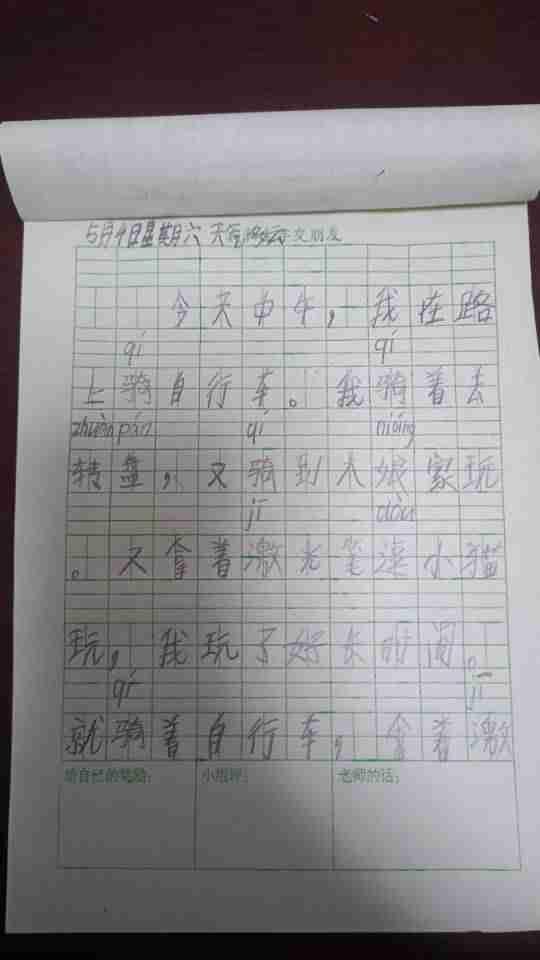 5月4日星期六 天气 交朋友
今天中午,我在路
qí qí
上骑自行车。我骑着去
zhuànpán qí niáng
转盘,又骑到大娘家玩
jī dòu
。又拿着激光笔逗小猫
玩,我玩了好长时间。
qí jī
就骑着自行车,拿着激
给自己的奖励: 小组评: 老师的话: